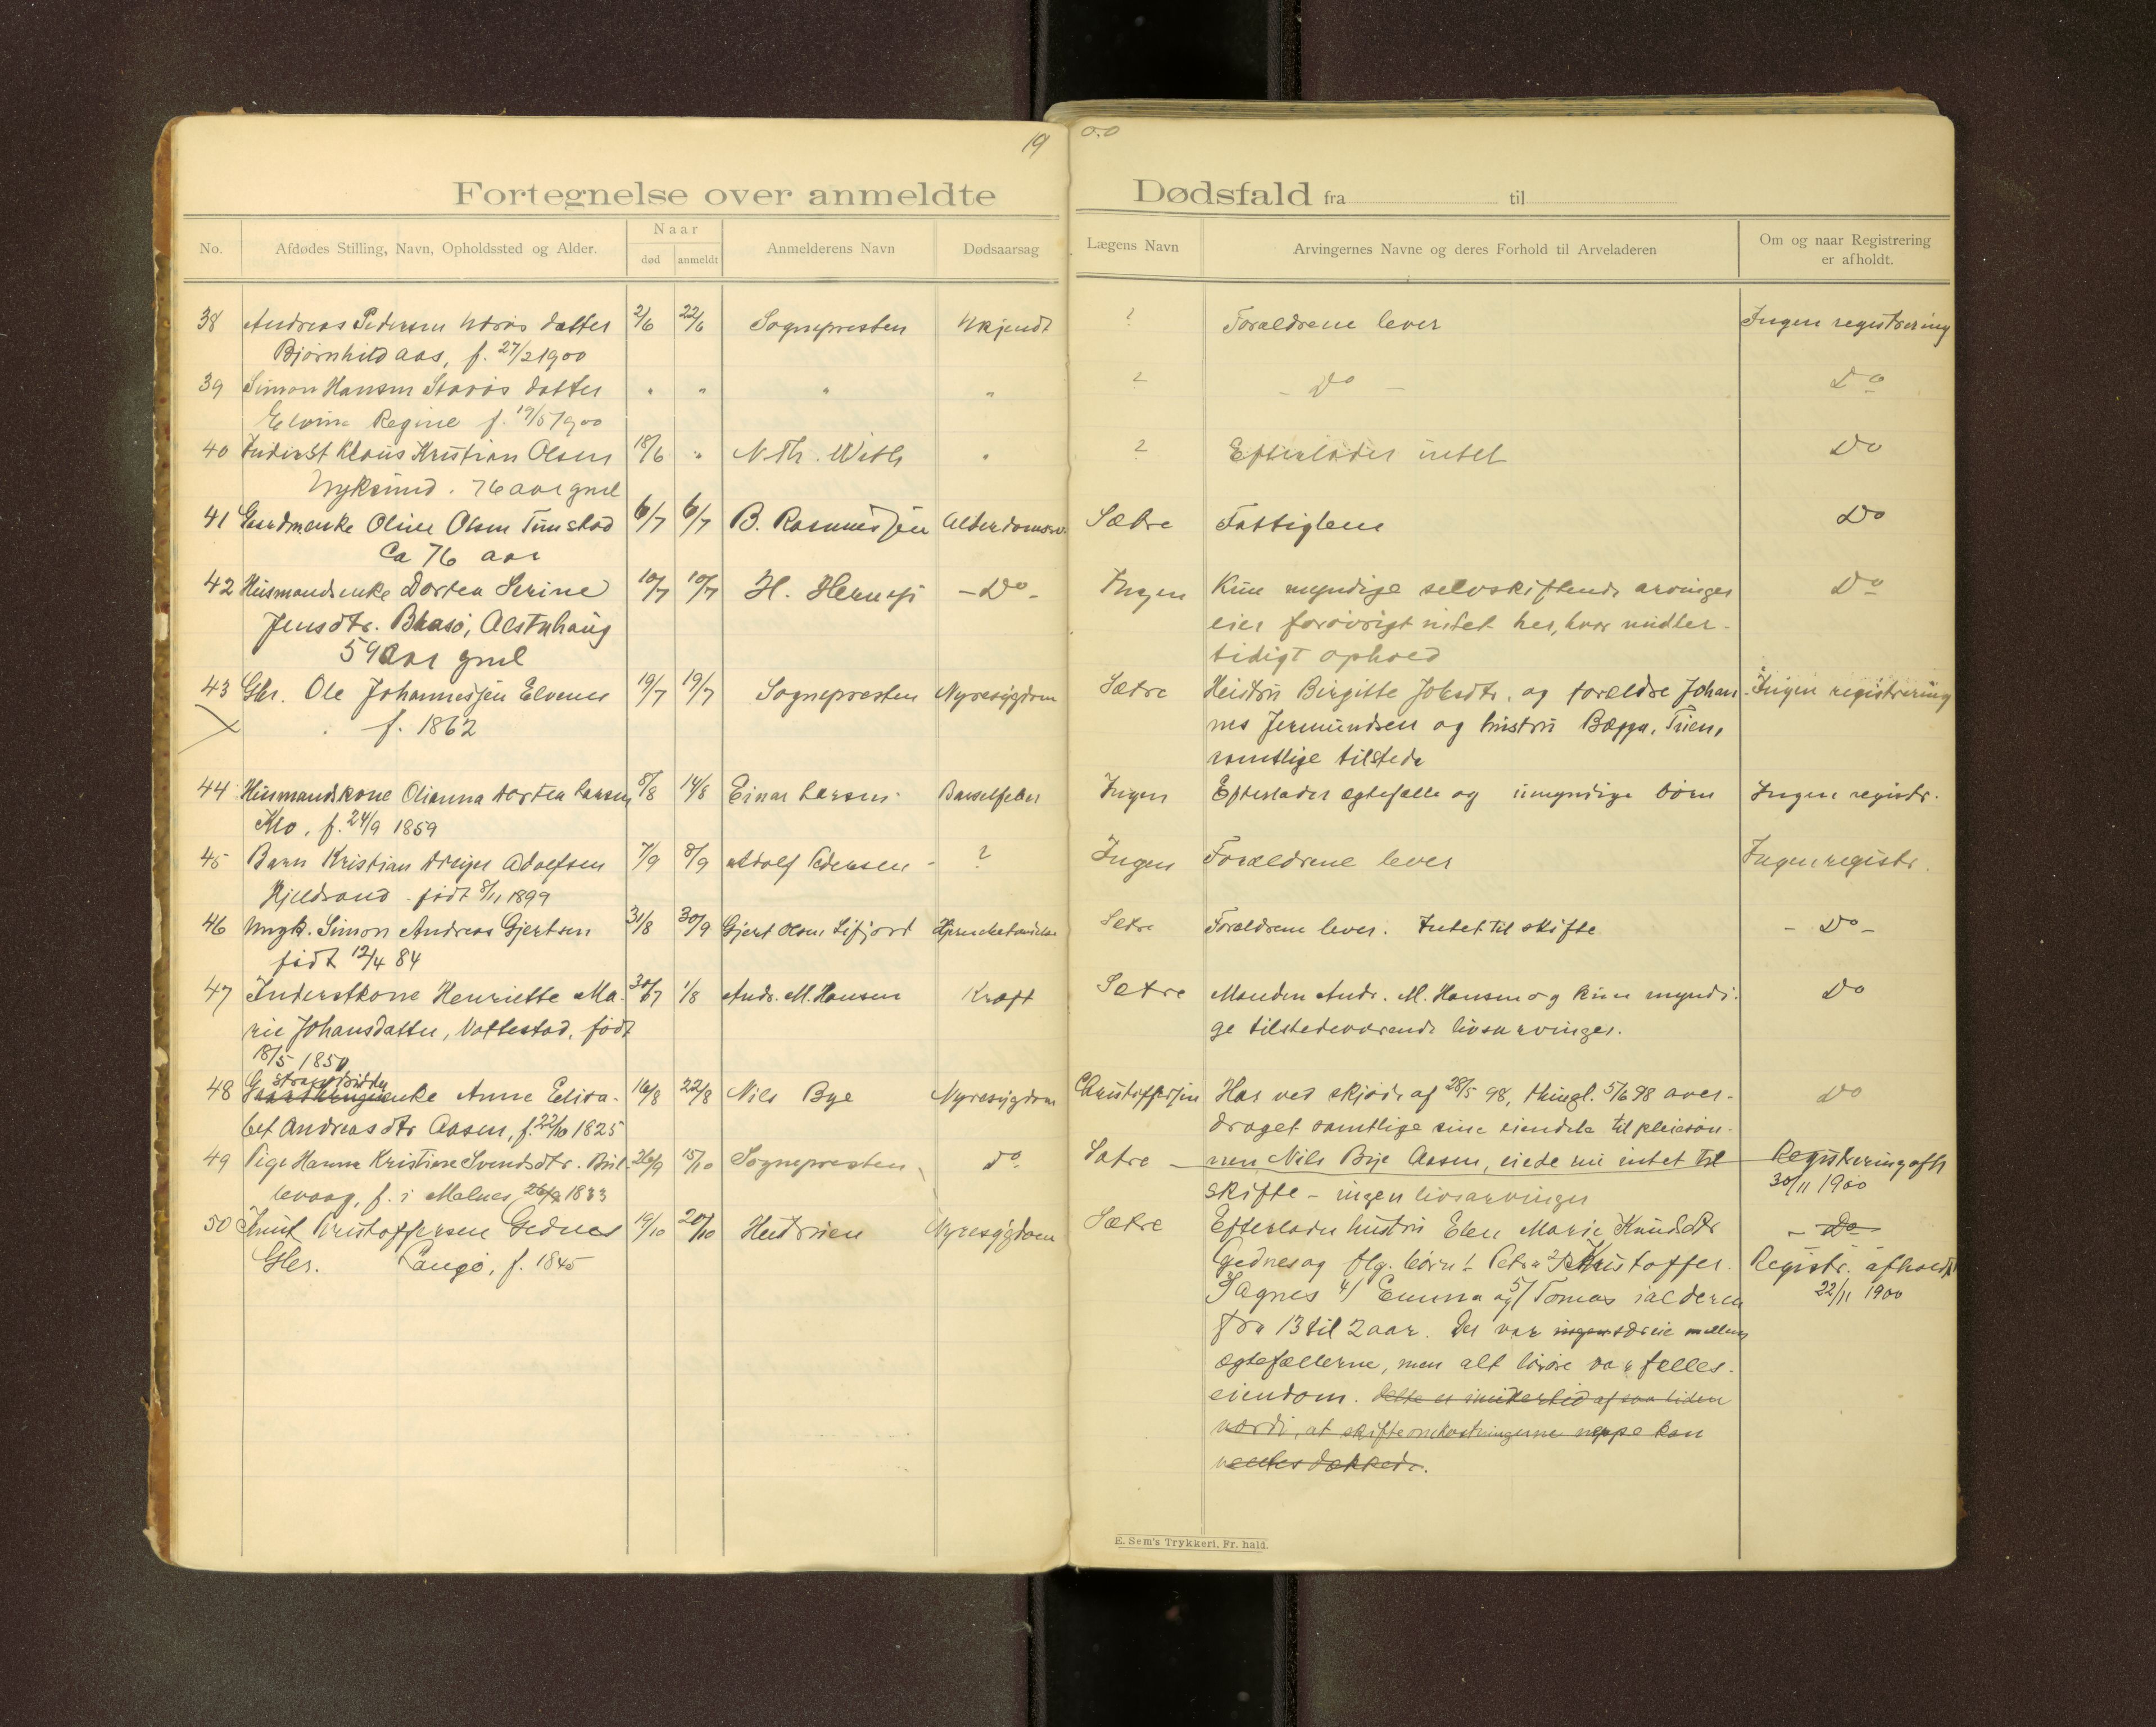 19
0.0
Fortegnelse over anmeldte
Dødsfald fra til
No.
Afdødes Stilling, Navn, Opholdssted og Alder.
Naar
død
anmeldt
Anmelderens Navn
Dødsaarsag
Lægens Navn
Arvingernes Navne og deres Forhold til Arveladeren
Om og naar Registrering
er afholdt.
38 Andreas Pedersen datter 2/6 22/6 Sognepresten Ukjendt ? Forældrene lever Ingen registrering
Bjørnhild aas, f. 27/2 1900
39 Simon Hansen Starøs datter " " " " ? - Do - Do
Elvine Regine f. 17/5 1900
40 Inderst Klaus Kristian Olsen 18/6 " N. Th. With " ? Efterlader intet Do
Nyksund. 76 aar gml
41 Gaardmenke Oline Olsen Tunstad 6/7 6/7 B. Rasmussen Alderdomssv. Sætre Fattiglem Do
Ca 76 aar
42 Husmandsenke Dortea Serine 10/7 10/7 H. -Do- Ingen Kun myndige selvskiftende arvinger Do
Jensdtr. Blaasø, Alstahaug eier forøvrigt intet her, hvor midler-
59 Aar gml tidigt ophold
43 Gbr. Ole Johannessen Elvenes 19/7 19/7 Sognepresten Nyresygdom Sætre Heistru Birgitte Johsdtr. og forældre Johan- Ingen registrering
f. 1862 nes Jermundsen og hustru Tuen,
samtlige tilstede
44 Husmandskone Olianna Dortea Larsen 8/8 14/8 Einar Larsen Barselfeber Ingen Efterlader ægtefælle og umyndige børn Ingen registr.
Klo, f. 24/9 1859
45 Barn Kristian Dreyer Adolfsen 7/9 8/9 Adolf Pedersen - ? Ingen Forældrene lever Ingen registr.
Hjeldsand født 8/11 1899
46 Ungk. Simon Andreas Gjertsen 31/8 30/9 Gjert Olsen Lifjord Sætre Forældrene lever. Intet til skifte - Do -
født 12/4 84
47 Inderstkone Henriette Ma- 30/7 1/8 Andr. M. Hansen Kræft Sætre Manden Andr. M. Hansen og kun myndi- Do
rie Johansdatter, Vottestad, født ge tilstedeværende livsarvinger.
18/5 1850
48 Strandsidder enke Anne Elisa- 16/8 22/8 Nils Bye Nyresygdom Christoffersen Har ved skjøde af 28/5 98, thingl. 5/6 98 over- Do
bet Andreasdtr Aasen, f. 22/10 1825 draget samtlige sine eiendele til pleiesøn-
49 Pige Hanna Kristine Svendsdtr. 26/9 15/10 Sognepresten do. Sætre nen Nils Bye Aasen, eiede nu intet til Registrering afh
levaag, f. i Melnes 26/2 1833 skifte - ingen livsarvinger 30/11 1900
50 Knut Kristoffersen Gednes 19/10 20/10 Hustruen Nyresygdom Sætre Efterlader hustru Elen Marie Knudsdtr - Do
Gbr. Langø, f. 1845 Gednes og flg. børn 1 Petra 2) Kristoffer Registr. afholdt
3 Agnes 4) Emma og 5) Tomas i alderen 22/11 1900
fra 13 til 2 aar. Der var ingen særeie mellem
ægtefællerne, men alt løsøre var fælles-
eiendom. dette er imidlertid af saa liden
værdi, at skifteomkostningerne neppe kan
ventes dækkede.
E. Sem's Trykkeri, Fr.hald.